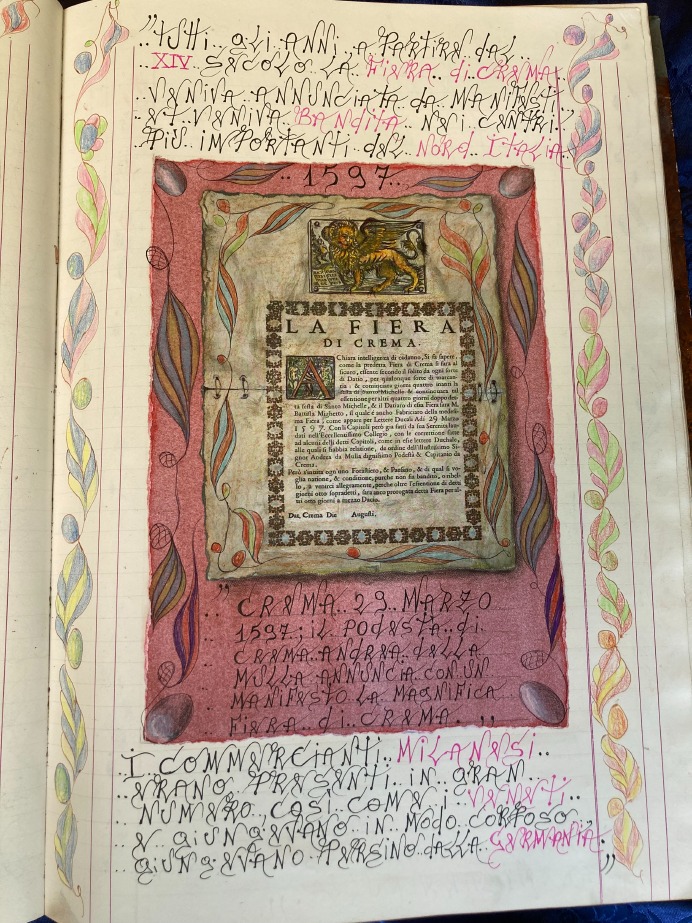 "TUTTI GLI ANNI A PARTIRE DAL
XIV SECOLO LA FIERA di CREMA
VENIVA ANNUNCIATA da MANIFESTI
ET VENIVA BANDITA NEI CENTRI
PIÙ IMPORTANTI DEL NORD ITALIA
..1597..
LA FIERA
DI CREMA.
A Chiara intelligenza di cidanno, Si fa sapere,
come la presente Fiera di Crema si farà al
sicuro, essente secondo il solito da ogni sorte
di Datio, per qualonque sorte di mercan-
tia: & cominciara giorni quattro inanti la
festa di Santo Michelle & continuara tal
essentione per altri quattro giorni doppo det-
ta festa di Santo Michelle, & il Datiaro di essa Fiera sarà M.
Battista Mighetto, il quale è ancho Fabricato della medesi-
ma Fiera, come appare per Lettere Ducali Adi 29 Marzo
1597. Con li Capitoli però già fatti da sua Serenità, lau-
dati nell'Eccellentissimo Collegio, con le corretttione fatte
ad alcuni delli detti Capitoli, come in esse lettere Duchale,
alle quali si habbia relatione, de ordine dell'Illustrissimo Si-
gnor Andrea da Mulla dignissimo Podestà & Capitanio da
Crema.
Però s'invita ogni uno Forastiero, & Paesano, & di qual si vo-
glia natione, & conditione, purche non sia bandito, o ribel-
lo, à venirci allegramente, perche oltre l'essentione di detti
giorni otto sopradetti, sarà anco prorogata detta Fiera per al-
tri otto giorni a mezzo Dacio.
Dat. Crema Die Augusti.
"CREMA.. 29 MARZO
1597; IL PODESTÀ.. di
CREMA ANDREA DELLA
MULLA ANNUNCIA CON UN
MANIFESTO LA MAGNIFICA
FIERA.. di.. CREMA.."
I COMMERCIANTI MILANESI..
ERANO PRESENTI IN GRAN
NUMERO, COSÌ COME I VENETI..
E GIUNGEVANO IN MODO CORPOSO,
GIUNGEVANO PERSINO DALLA GERMANIA."